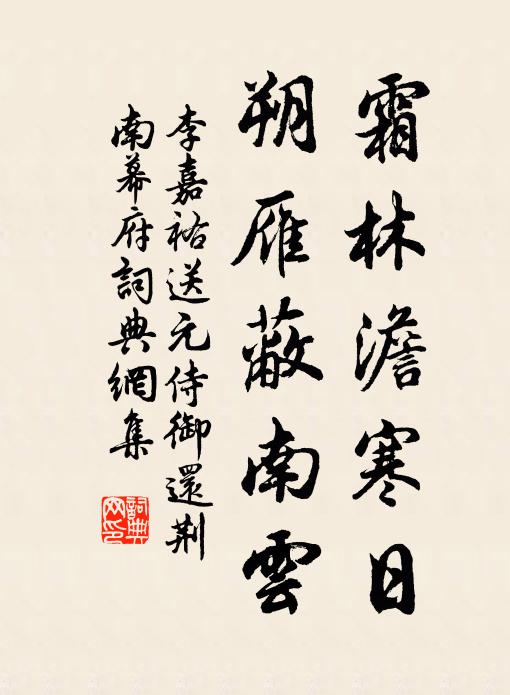 霜林澹寒日
朔雁蔽南雲
李嘉祐送元侍御還荆
南幕府詞典網集
詞典
网印